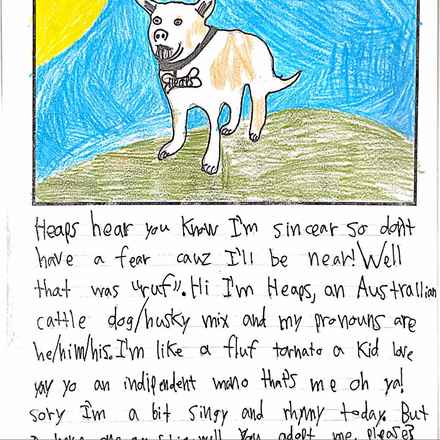 Heaps
Heaps hear you know I'm sincear so don't
have a fear cauz I'll be near! Well
that was "ruf". Hi I'm Heaps, an Australlian
cattle dog/husky mix and my pronouns are
he/him/his. I'm like a fluf tornato a kid love
yay yo an indipendent mano that's me oh ya!
sory I'm a bit singy and rhymy today. But
you adopt me please?